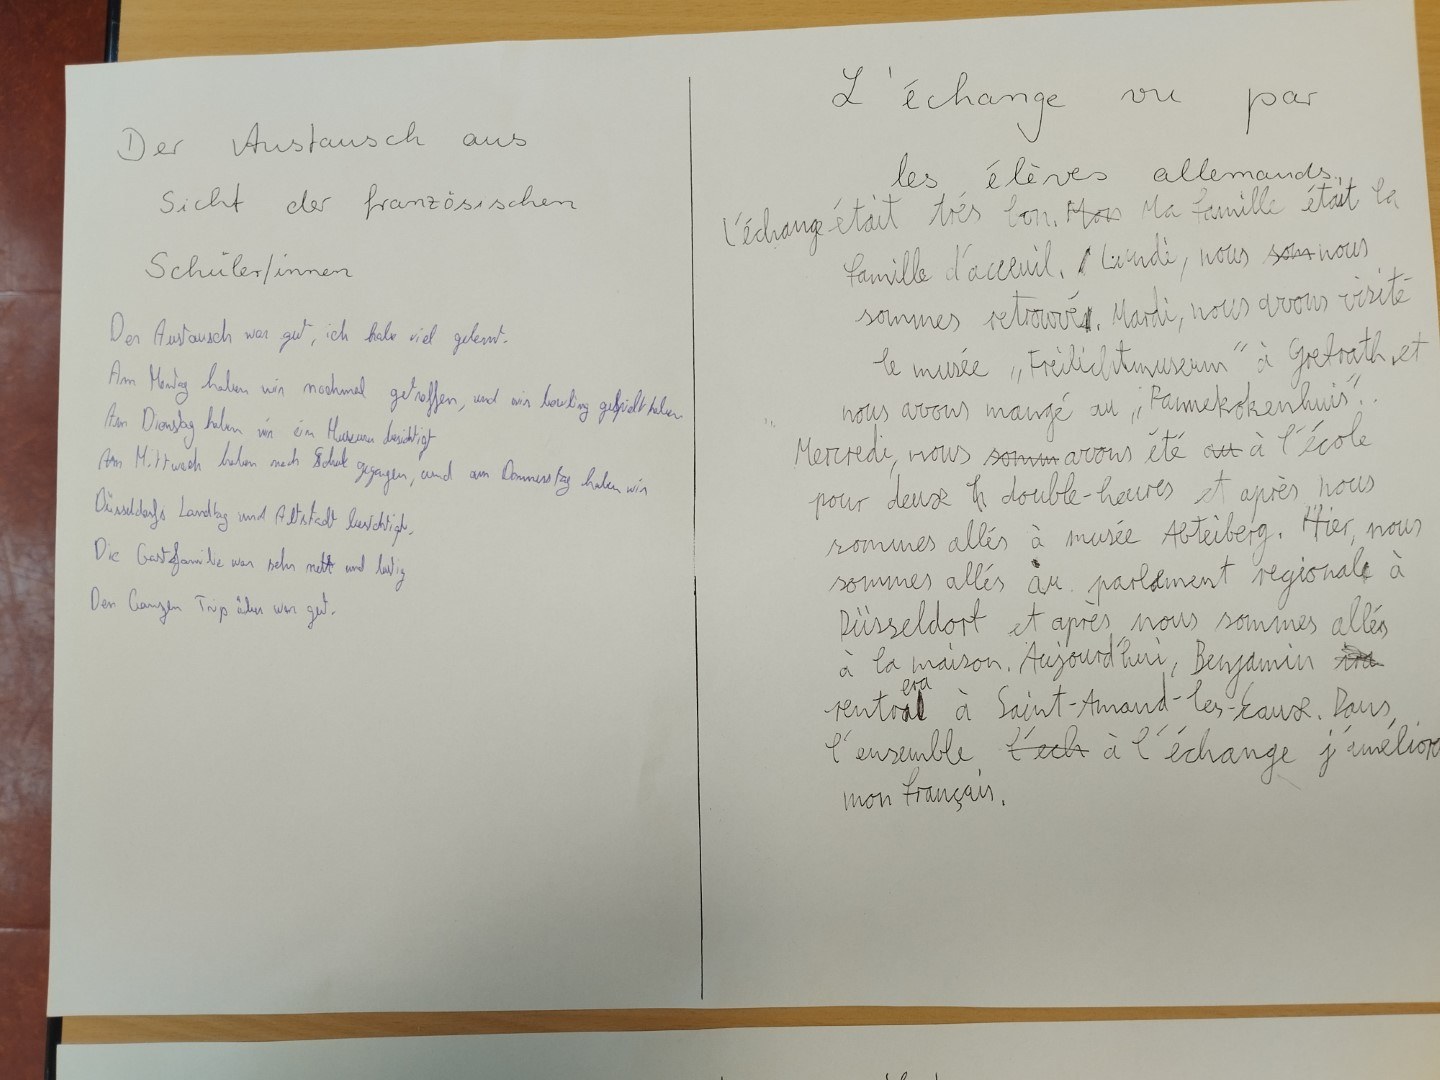 Der Austausch aus
Sicht der französischen
Schüler/innen
Der Austausch war gut, ich habe viel gelernt.
Am Montag haben wir nochmal getroffen, und wir bowling gespielt haben
Am Dienstag haben wir ein Museum besichtigt
Am Mittwoch haben nach Schule gegangen, und am Donnerstag haben wir
Düsseldorfs Landtag und Altstadt besichtigt.
Die Gastfamilie war sehr nett und lustig
Den Ganzen Trip über war gut.
L'échange vu par
les élèves allemands.
L'échange était trés bon. Mon Ma famille était la
famille d'acceuil. Lundi, nous som nous
sommes retrouvé. Mardi, nous avons visité
le musée „Freilichtmuseum“ à Grefrath et
nous avons mangé au „Pannekokenhuis“.
Mercredi, nous somm avons été au à l'école
pour deux h double-heures et après nous
sommes allés à musée Abteiberg. Hier, nous
sommes allés au parlament regional à
Düsseldorf et après nous sommes allés
à la maison. Aujourd'hui, Benjamin ira
rentrera à Saint-Amand-les-Eaux. Dans
l'ensemble l'ech à l'échange j'améliora
mon français.